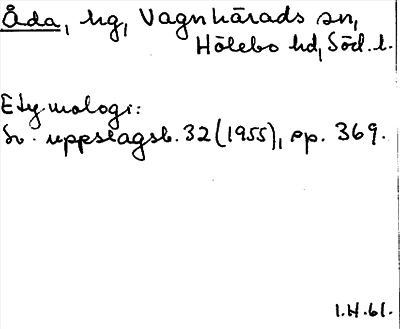 Åda, hg, Vagnhärads sn,
Hölebo hd, Söd. l.
Etymologi:
Sv. uppslagsb. 32 (1955), sp. 369.
I.H.61.